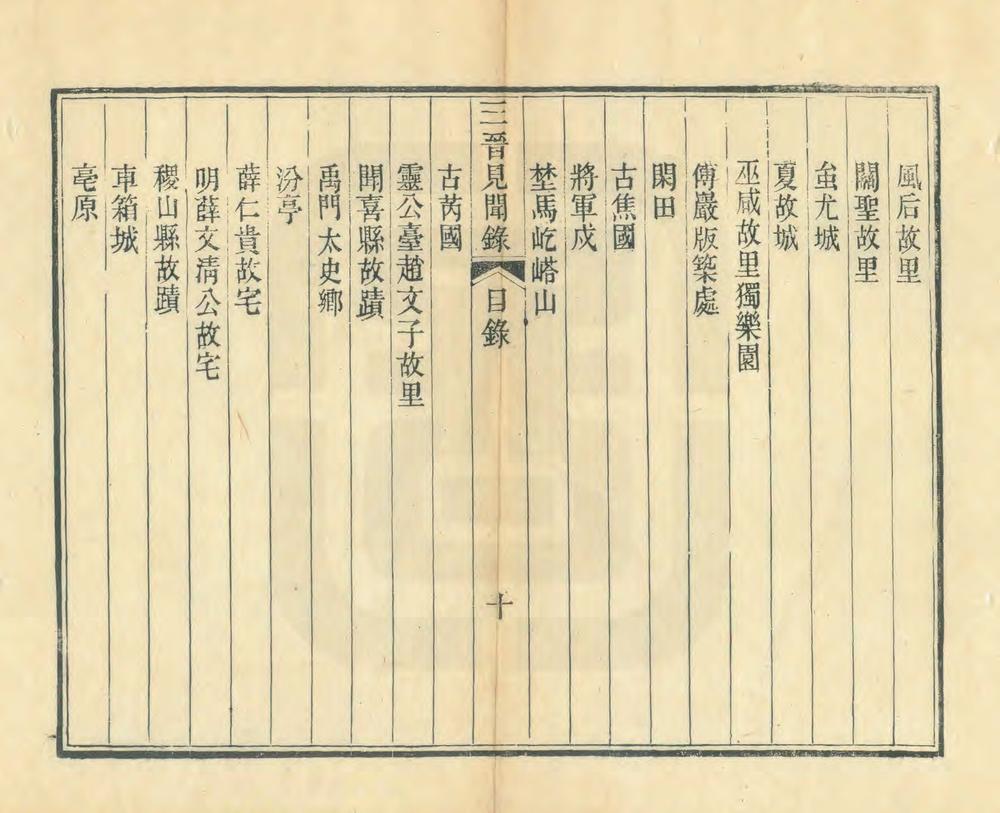 風后故里
關聖故里
蚩尤城
夏故城
巫咸故里獨樂園
傅巖版築處
閑田
古焦國
將軍戍
埜馬屹嵧山
三晉見聞錄 目錄 十
古芮國
靈公臺趙文子故里
聞喜縣故蹟
禹門太史鄉
汾亭
薛仁貴故宅
明薛文清公故宅
稷山縣故蹟
車箱城
亳原